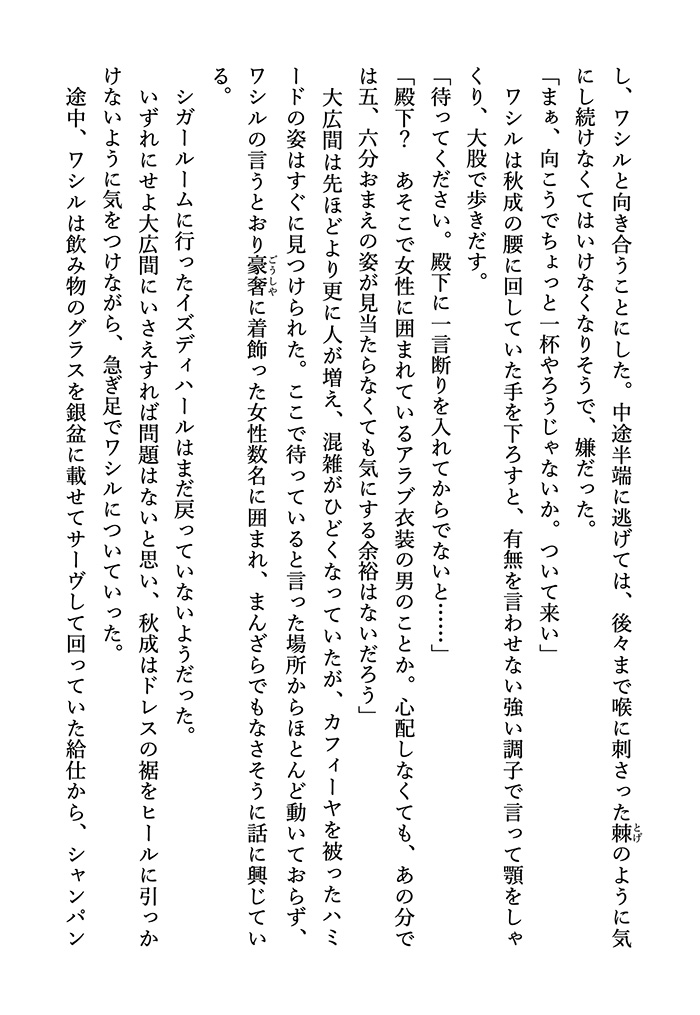 し、ワシルと向き合うことにした。中途半端に逃げては、後々まで喉に刺さった棘とげのように気
にし続けなくてはいけなくなりそうで、嫌だった。
「まぁ、向こうでちょっと一杯やろうじゃないか。ついて来い」
ワシルは秋成の腰に回していた手を下ろすと、有無を言わせない強い調子で言って顎をしゃ
くり、大股で歩きだす。
「待ってください。殿下に一言断りを入れてからでないと……」
「殿下？　あそこで女性に囲まれているアラブ衣装の男のことか。心配しなくても、あの分で
は五、六分おまえの姿が見当たらなくても気にする余裕はないだろう」
大広間は先ほどより更に人が増え、混雑がひどくなっていたが、カフィーヤを被ったハミ
ードの姿はすぐに見つけられた。ここで待っていると言った場所からほとんど動いておらず、
ワシルの言うとおり豪奢ごうしゃに着飾った女性数名に囲まれ、まんざらでもなさそうに話に興じてい
る。
シガールームに行ったイズディハールはまだ戻っていないようだった。
いずれにせよ大広間にいさえすれば問題はないと思い、秋成はドレスの裾をヒールに引っか
けないように気をつけながら、急ぎ足でワシルについていった。
途中、ワシルは飲み物のグラスを銀盆に載せてサーヴして回っていた給仕から、シャンパン